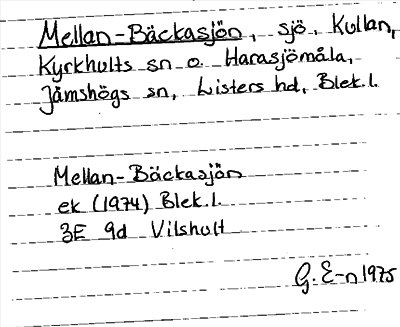 Mellan-Bäckasjön, sjö, Kullan,
Kyrkhults sn o. Harasjömåla,
Jämshögs sn, Listers hd, Blek.l.
Mellan-Bäckasjön
ek (1974) Blek.l.
3E 9d Vilshult
G. E-n 1975